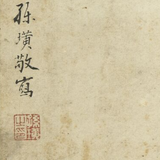 孫璜敬寫